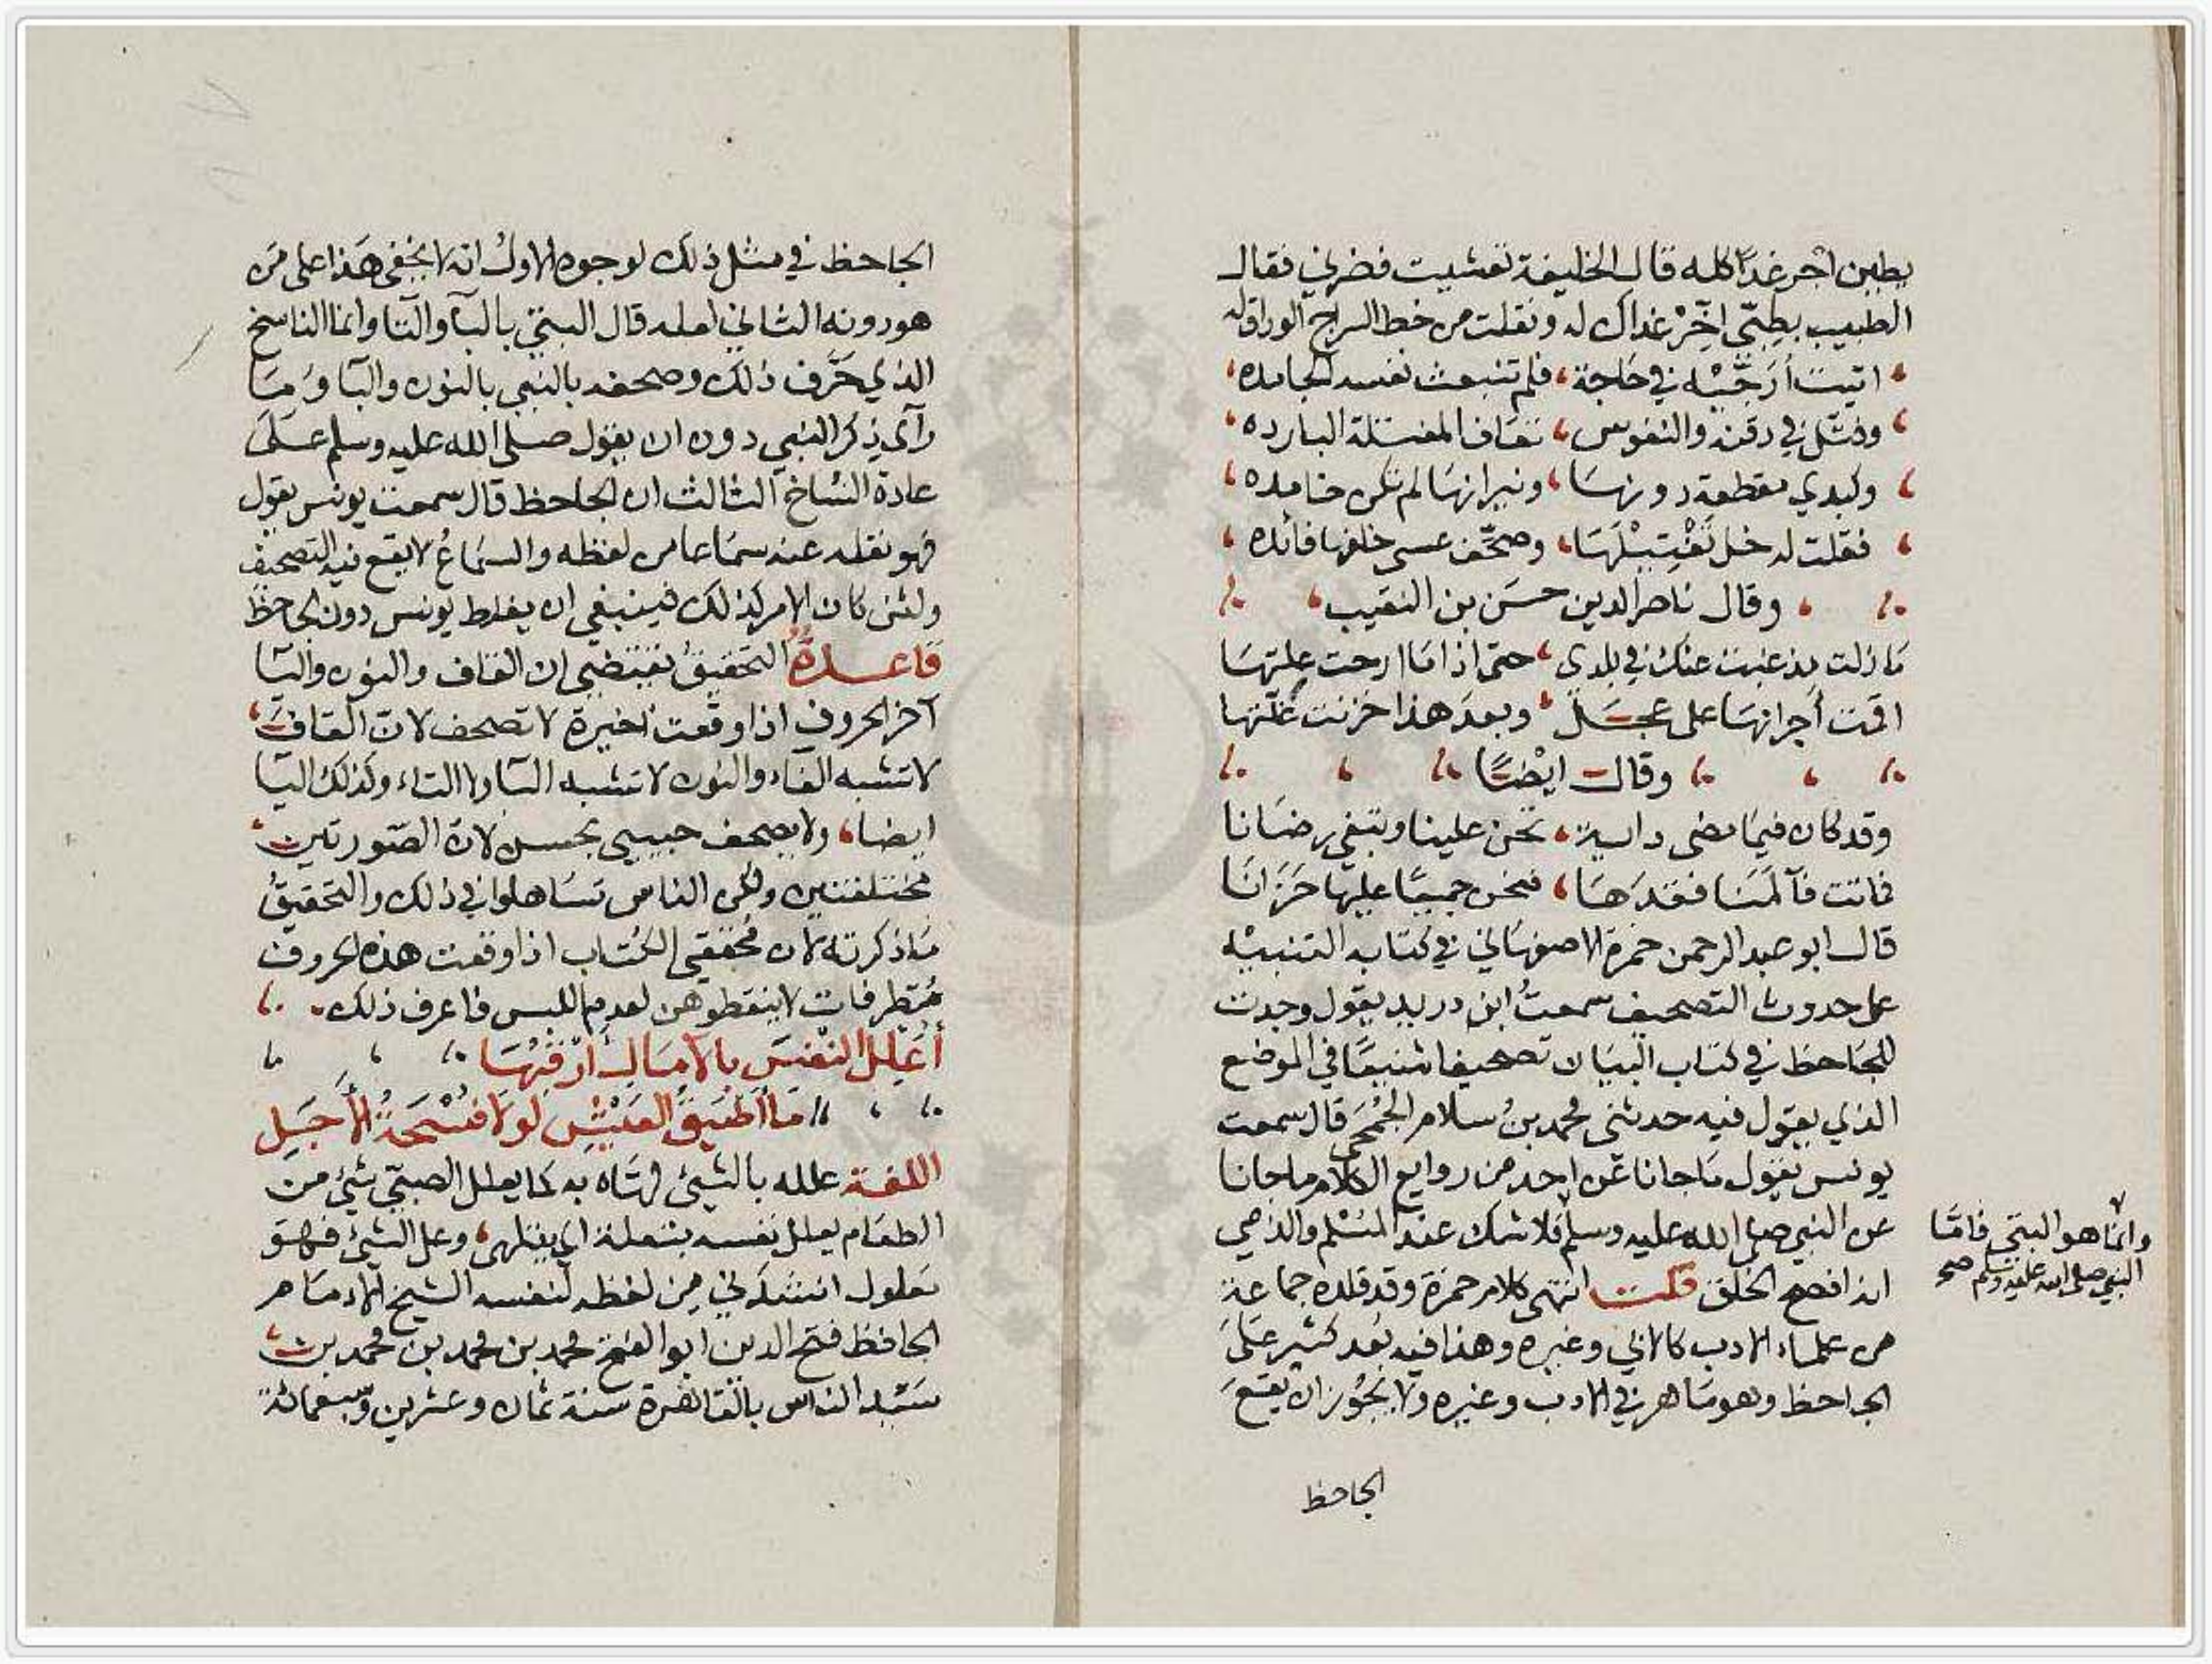 بطبن اخر غدا كله قال الخليفة تعشيت فضرني فقال
الطبيب بطبي اخر غداك له ونقلت من خط السراج الوراق له
اتيت أرجيه في حاجة فلم تنبعث نفسه الجامده
وفتل في دقنه والنفوس تعاف المفتلة البارده
وكبدي مقطعة دونها ونيرانها لم تكن خامده
فقلت له خل تفتيلها وصحف عسى خلفها فائده
وقال ناصر الدين حسن بن النقيب
ما زلت مذ غبت عنك في بلدي حتى اذا ما ازحت علتها
اقمت أجرانها على عجل وبعد هذا خزنت غلتها
وقال ايضا
وقد كان فيما مضى داية تحن علينا وتبغي رضانا
فماتت فآلمنا فقدها فنحن جميعا عليها حزانا
قال ابو عبد الرحمن حمزة الاصفهاني في كتابه التنبيه
على حدوث التصحيف سمعت ابن دريد يقول وجدت
للجاحظ في كتاب البيان تصحيفا شنيعا في الموضع
الذي يقول فيه حدثني محمد بن سلام الجمحي قال سمعت
يونس يقول ما جانا عن احد من روايع الكلام ما جانا
عن النبي صلى الله عليه وسلم فلا شك عند المسلم والذمي
وانما هو البتي فامّا
النبي صلى الله عليه وسلم صح
انه افصح الخلق قلت انتهى كلام حمزة وقد قلده جماعة
من علماء الادب كالاني وغيره وهذا فيه بعد كثير على
الجاحظ وهو ماهر في الادب وغيره ولا يجوز ان يقع
الجاحظ
الجاحظ في مثل ذلك لوجوه الاول انه لا يخفى هذا على من
هو دونه الثاني لعله قال البتي بالبآ والتا وانما الناسخ
الذي حرّف ذلك وصحفه بالنبي بالنون والبا ومما
رآى ذكر النبي دون ان يقول صلى الله عليه وسلم على
عادة النساخ الثالث ان الجاحظ قال سمعت يونس يقول
فهو نقله عنه سماعا من لفظه والسماع لا يقع فيه التصحيف
ولئن كان الامر كذلك فينبغي ان يغلط يونس دون الجاحظ
قاعدة التحقيق يقتضي ان القاف والنون واليا
آخر الحروف اذا وقعت اخيرة لا تصحف لان القاف
لا تشبه الفاء والنون لا تشبه التا ولا الثاء وكذلك اليا
ايضا ولا يصحف حبيبي بحسن لان الصورتين
مختلفتين ولكن الناس تساهلوا في ذلك والتحقيق
ما ذكرته لان محققي الكتاب اذا وقعت هذه الحروف
متطرفات لا ينقطوهن لعدم اللبس فاعرف ذلك
أعلل النفس بالآمال أرقبها
ما أضيق العيش لولا فسحة الأجل
اللغة علله بالشيئ لهاه به كما يعلل الصبي بشيئ من
الطعام يعلل نفسه بتعلة اي يتلهى وعل الشيئ فهو
معلول انشدني من لفظه لنفسه الشيخ الامام
الحافظ فتح الدين ابو الفتح محمد بن محمد بن محمد بن
سيد الناس بالقاهرة سنة ثمان وعشرين وسبعمائة